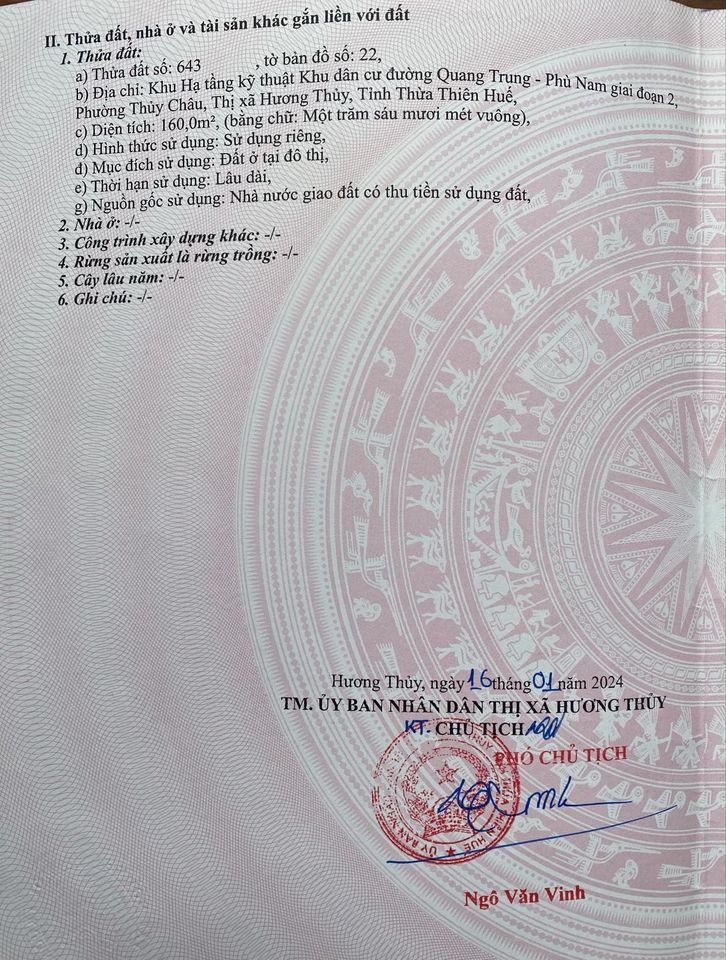 II. Thửa đất, nhà ở và tài sản khác gắn liền với đất
1. Thửa đất:
a) Thửa đất số: 643 , tờ bản đồ số: 22,
b) Địa chỉ: Khu Hạ tầng kỹ thuật Khu dân cư đường Quang Trung - Phù Nam giai đoạn 2,
Phường Thủy Châu, Thị xã Hương Thủy, Tỉnh Thừa Thiên Huế,
c) Diện tích: 160,0m², (bằng chữ: Một trăm sáu mươi mét vuông),
d) Hình thức sử dụng: Sử dụng riêng,
đ) Mục đích sử dụng: Đất ở tại đô thị,
e) Thời hạn sử dụng: Lâu dài,
g) Nguồn gốc sử dụng: Nhà nước giao đất có thu tiền sử dụng đất,
2. Nhà ở: -/-
3. Công trình xây dựng khác: -/-
4. Rừng sản xuất là rừng trồng: -/-
5. Cây lâu năm: -/-
6. Ghi chú: -/-
Hương Thủy, ngày 16 tháng 01 năm 2024
TM. ỦY BAN NHÂN DÂN THỊ XÃ HƯƠNG THỦY
KT. CHỦ TỊCH
PHÓ CHỦ TỊCH
Ngô Văn Vinh